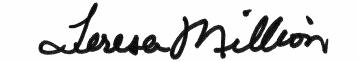 Teresa Million